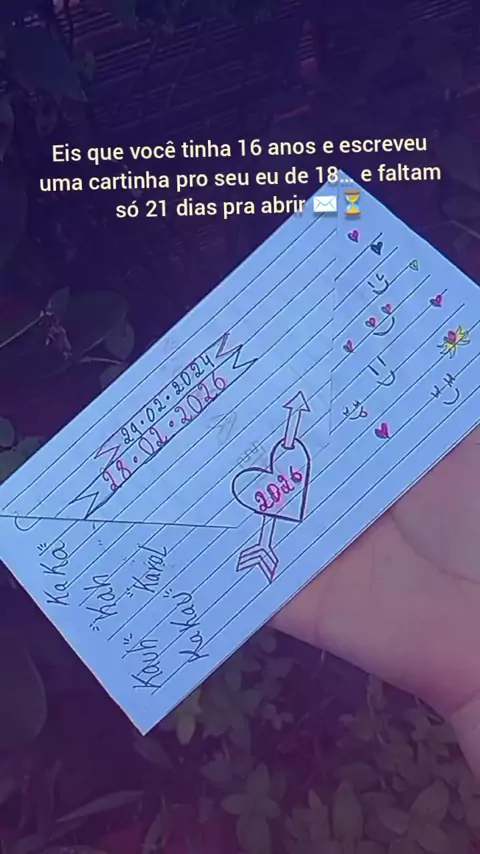 Eis que você tinha 16 anos e escreveu
uma cartinha pro seu eu de 18... e faltam
só 21 dias pra abrir ✉️⏳
29.02.2024
28.02.2026
2026
KaKa
"Kah"
Karol
Kauh
KaKau